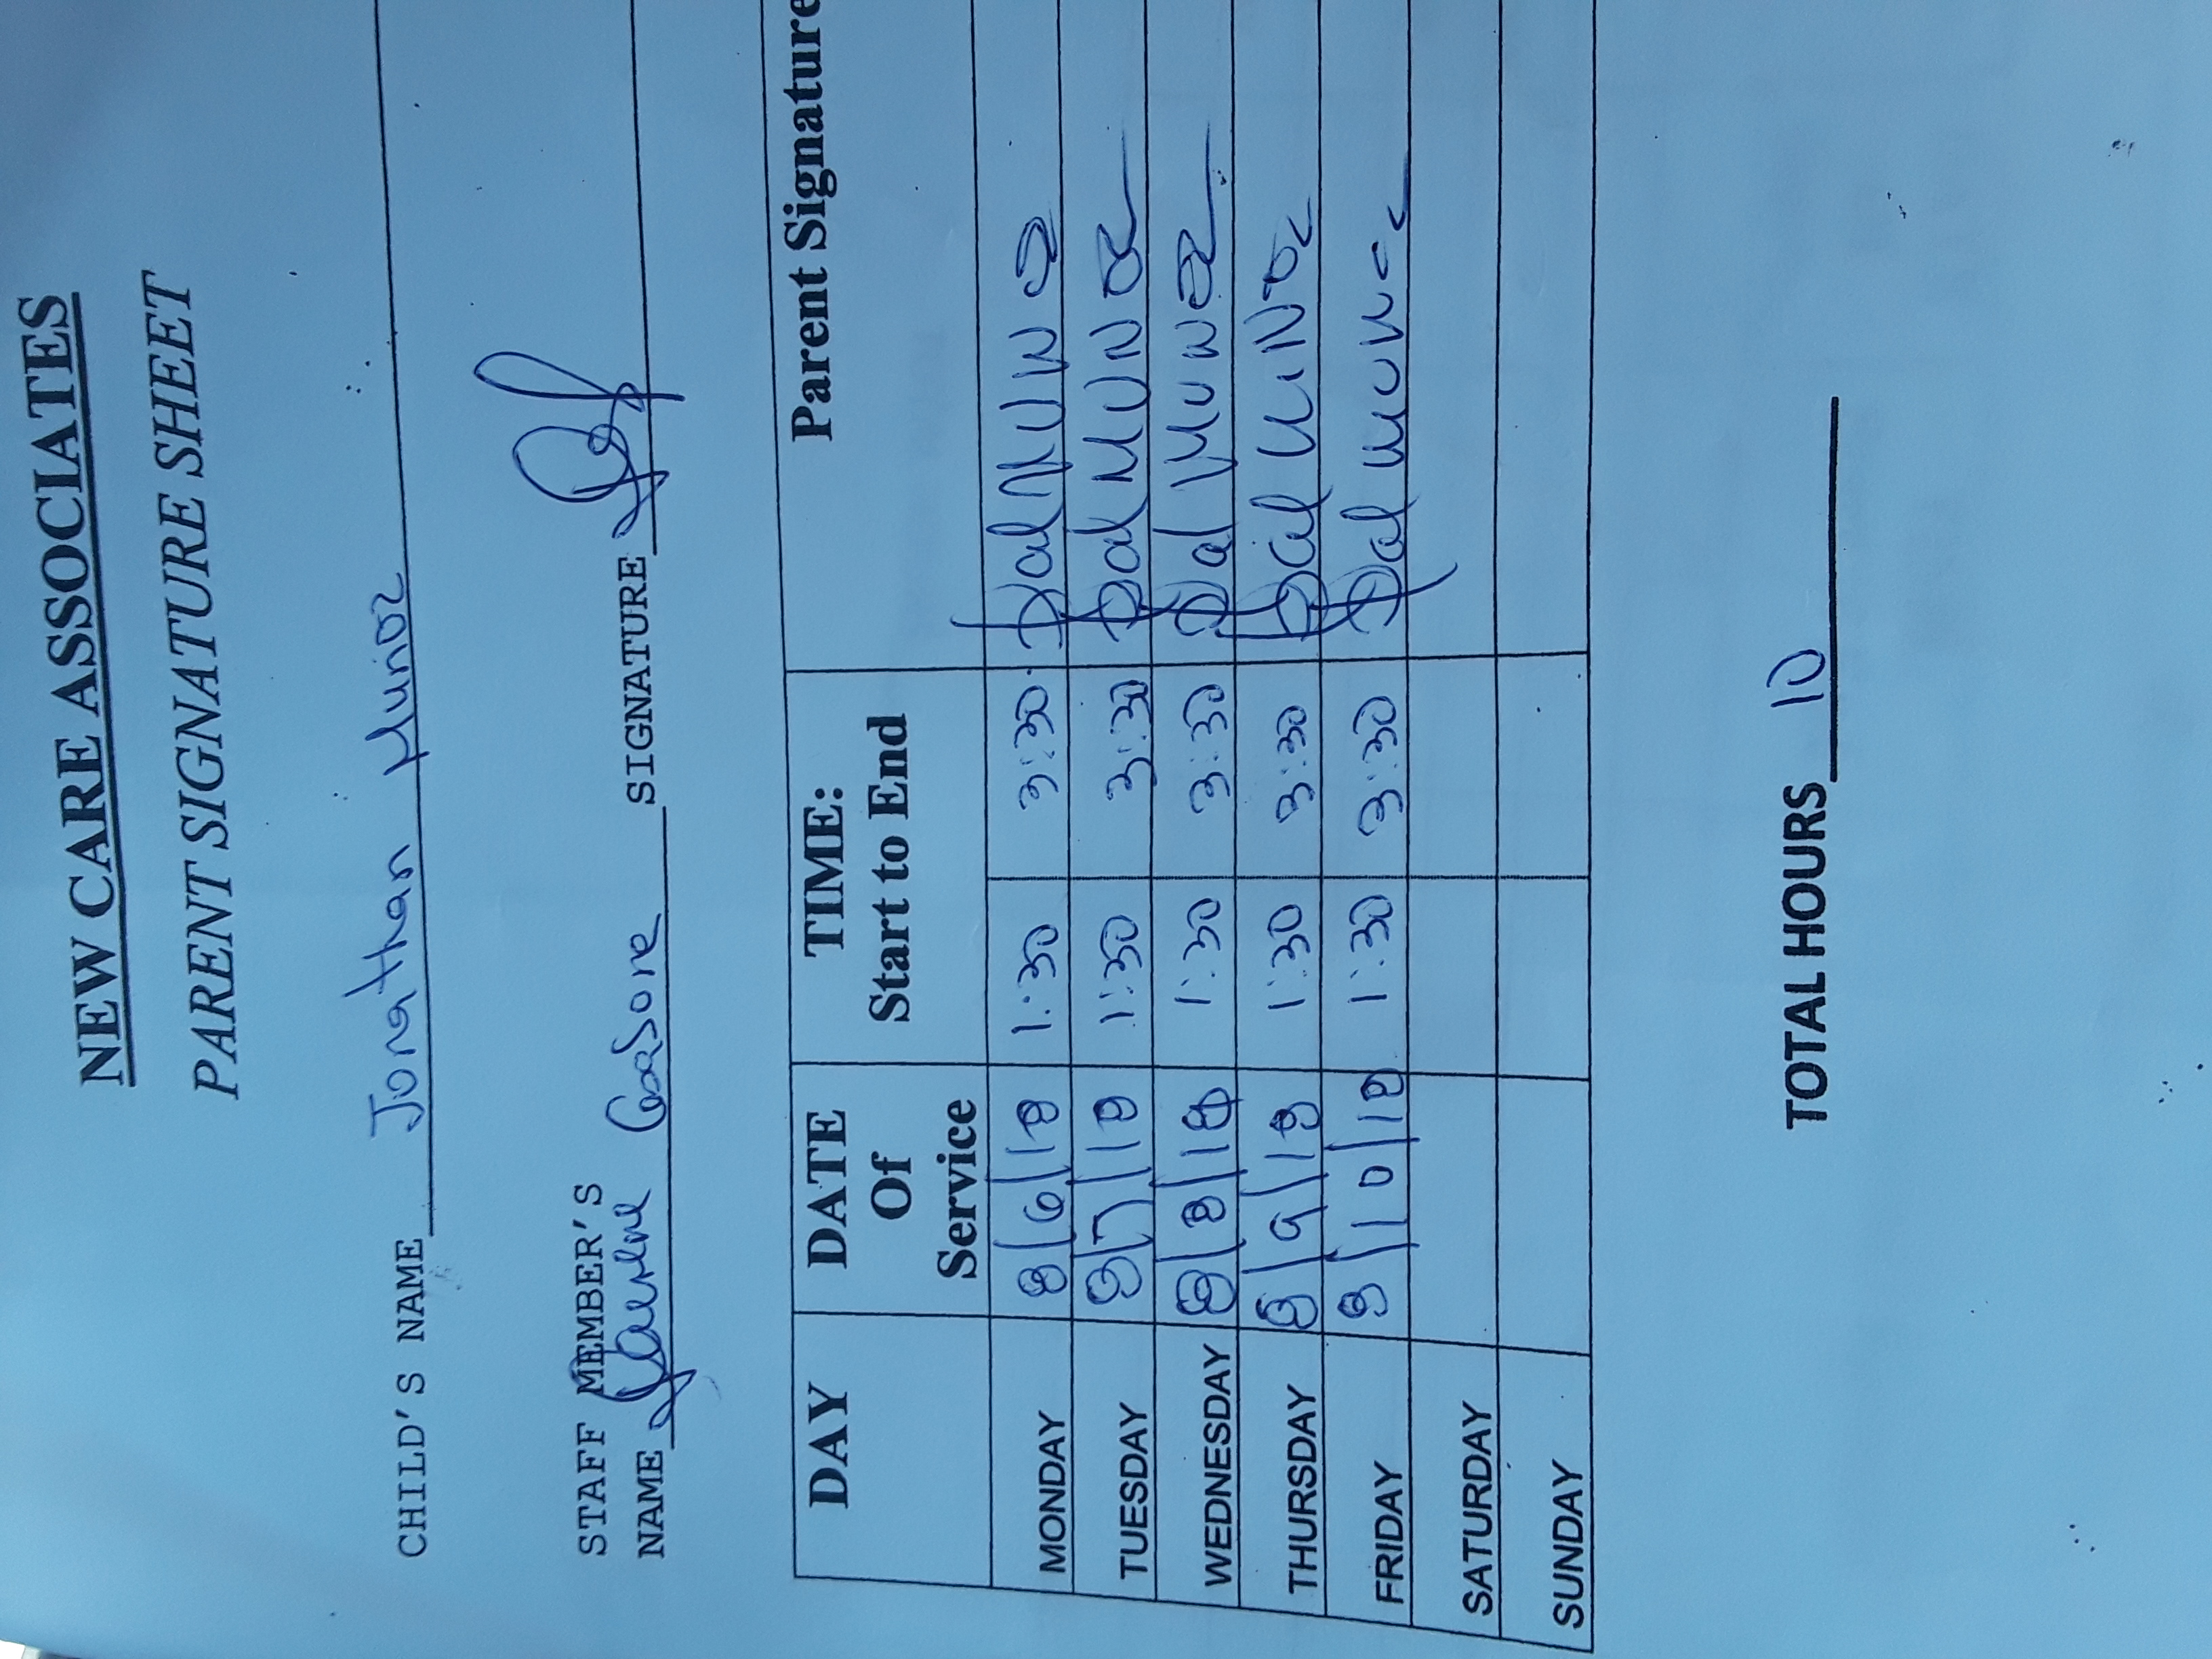 NEW CARE ASSOCIATES
PARENT SIGNATURE SHEET
CHILD'S NAME Jonathan Muñoz
STAFF MEMBER'S
NAME SIGNATURE
DAY DATE Of Service TIME: Start to End Parent Signature
MONDAY 8/6/18 1:30 3:30 MUNOZ
TUESDAY 8/7/18 1:30 3:30 MUNOZ
WEDNESDAY 8/8/18 1:30 3:30 MUNOZ
THURSDAY 8/9/18 1:30 3:30 MUNOZ
FRIDAY 8/10/18 1:30 3:30 MUNOZ
SATURDAY
SUNDAY
TOTAL HOURS 10